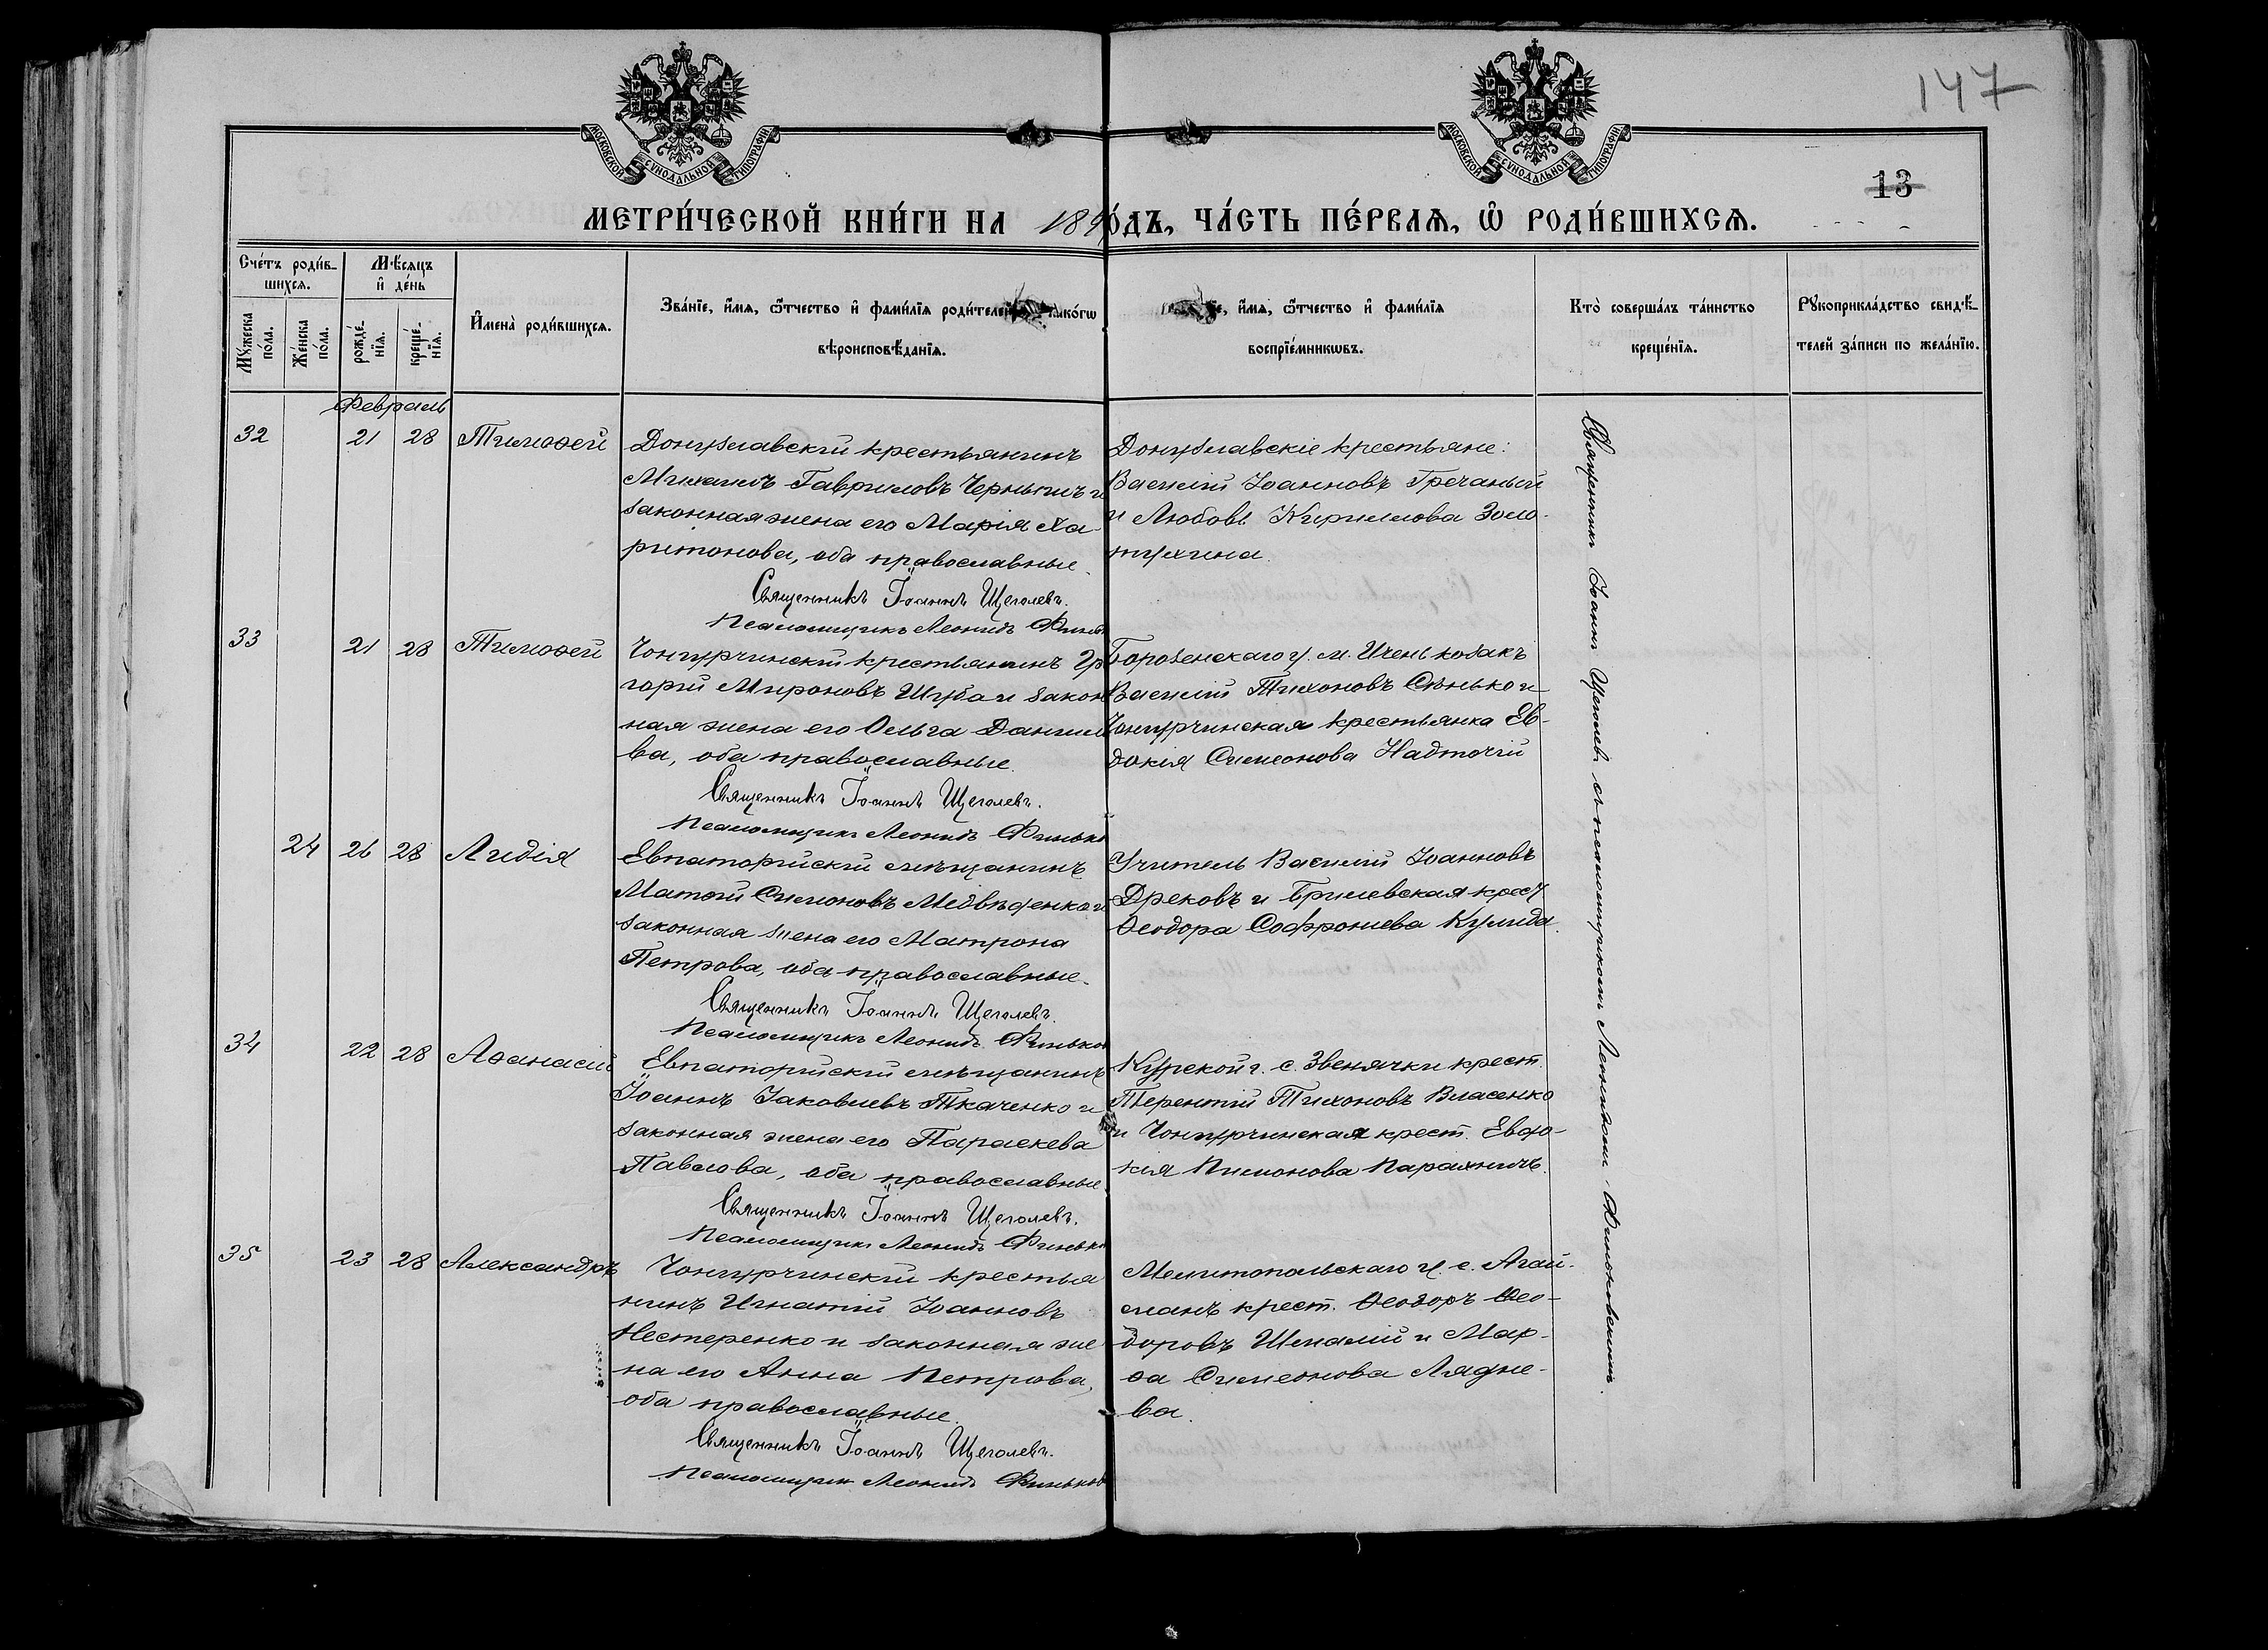 147
13
МОСКОВСКОЙ СѴНОДАЛЬНОЙ ТИПОГРАФІИ
МОСКОВСКОЙ СѴНОДАЛЬНОЙ ТИПОГРАФІИ
МЕТРИ́ЧЕСКОЙ КНИ́ГИ НА 189 О́ДЪ, ЧА́СТЬ ПЕ́РВАѦ, Ѿ РОДИ́ВШИХСѦ.
Сче́тъ роди́в-
шихсѧ.
Мѣ́сѧцъ
и҆ де́нь
Мꙋ́жеска
по́ла.
Же́нска
по́ла.
рожде́-
нїѧ.
креще́-
нїѧ.
И҆мена̀ роди́вшихсѧ.
Зва́нїе, и҆́мѧ, ѻ҆́тчество и҆ фами́лїѧ роди́телей
вѣроисповѣ́данїѧ.
и҆́мѧ, ѻ҆́тчество и҆ фами́лїѧ
воспрїе́мникѡвъ.
Кто̀ соверша́лъ та́инство
креще́нїѧ.
Рꙋкоприкла́дство свидѣ́-
телей за́писи по жела́нїю.
Февраль
32 21 28 Тимоѳей
Донузлавскій крестьянинъ
Михаилъ Гавриловъ Чернышъ и
законная жена его Марія Ха-
ритонова, оба православные.
Священникъ Іоаннъ Щеголевъ.
Псаломщикъ Леонидъ
Донузлавскіе крестьяне:
Василій Іоанновъ Гречаный
и Любовь Кириллова Золо-
тухина.
33 21 28 Тимоѳей
Чонгурчинскій крестьянинъ Гр
горій Мироновъ Шуба и закон
ная жена его Ольга Данил
ва, оба православные.
Священникъ Іоаннъ Щеголевъ.
Псаломщикъ Леонидъ Финьк
Борозенскаго у. м. Ичень козакъ
Василій Тихоновъ Сѣнько и
Чонгурчинская крестьянка Ев-
докія Симеонова Надточій
24 26 28 Лидія
Евпаторійскій мѣщанинъ
Матѳій Симоновъ Медвѣденко и
законная жена его Матрона
Петрова, оба православные.
Священникъ Іоаннъ Щеголевъ.
Псаломщикъ Леонидъ Финько
Учитель Василій Іоанновъ
Дрековъ и Брилевская крес
Ѳеодора Софроніева Кулида.
34 22 28 Аѳанасій
Евпаторійскій мѣщанинъ
Іоаннъ Іаковлевъ Ткаченко и
законная жена его Параскева
Павлова, оба православные.
Священникъ Іоаннъ Щеголевъ.
Псаломщикъ Леонидъ Финьк
Курской г. с. Звенячки крест.
Терентій Тихоновъ Власенко
и Чонгурчинская крест. Евдо-
кія Пимонова Парахничъ.
35 23 28 Александръ
Чонгурчинскій крестья
нинъ Игнатій Іоанновъ
Нестеренко и законная же
на его Анна Петрова,
оба православные.
Священникъ Іоаннъ Щеголевъ.
Псаломщикъ Леонидъ Финьков
Мелитопольскаго у. с. Агай-
манъ крест. Ѳеодоръ Ѳео-
доровъ Шпалій и Мар-
ѳа Симеонова Лядне-
ва.
Священникъ Іоаннъ Щеголевъ съ псаломщикомъ Леонидомъ Финьковскимъ.